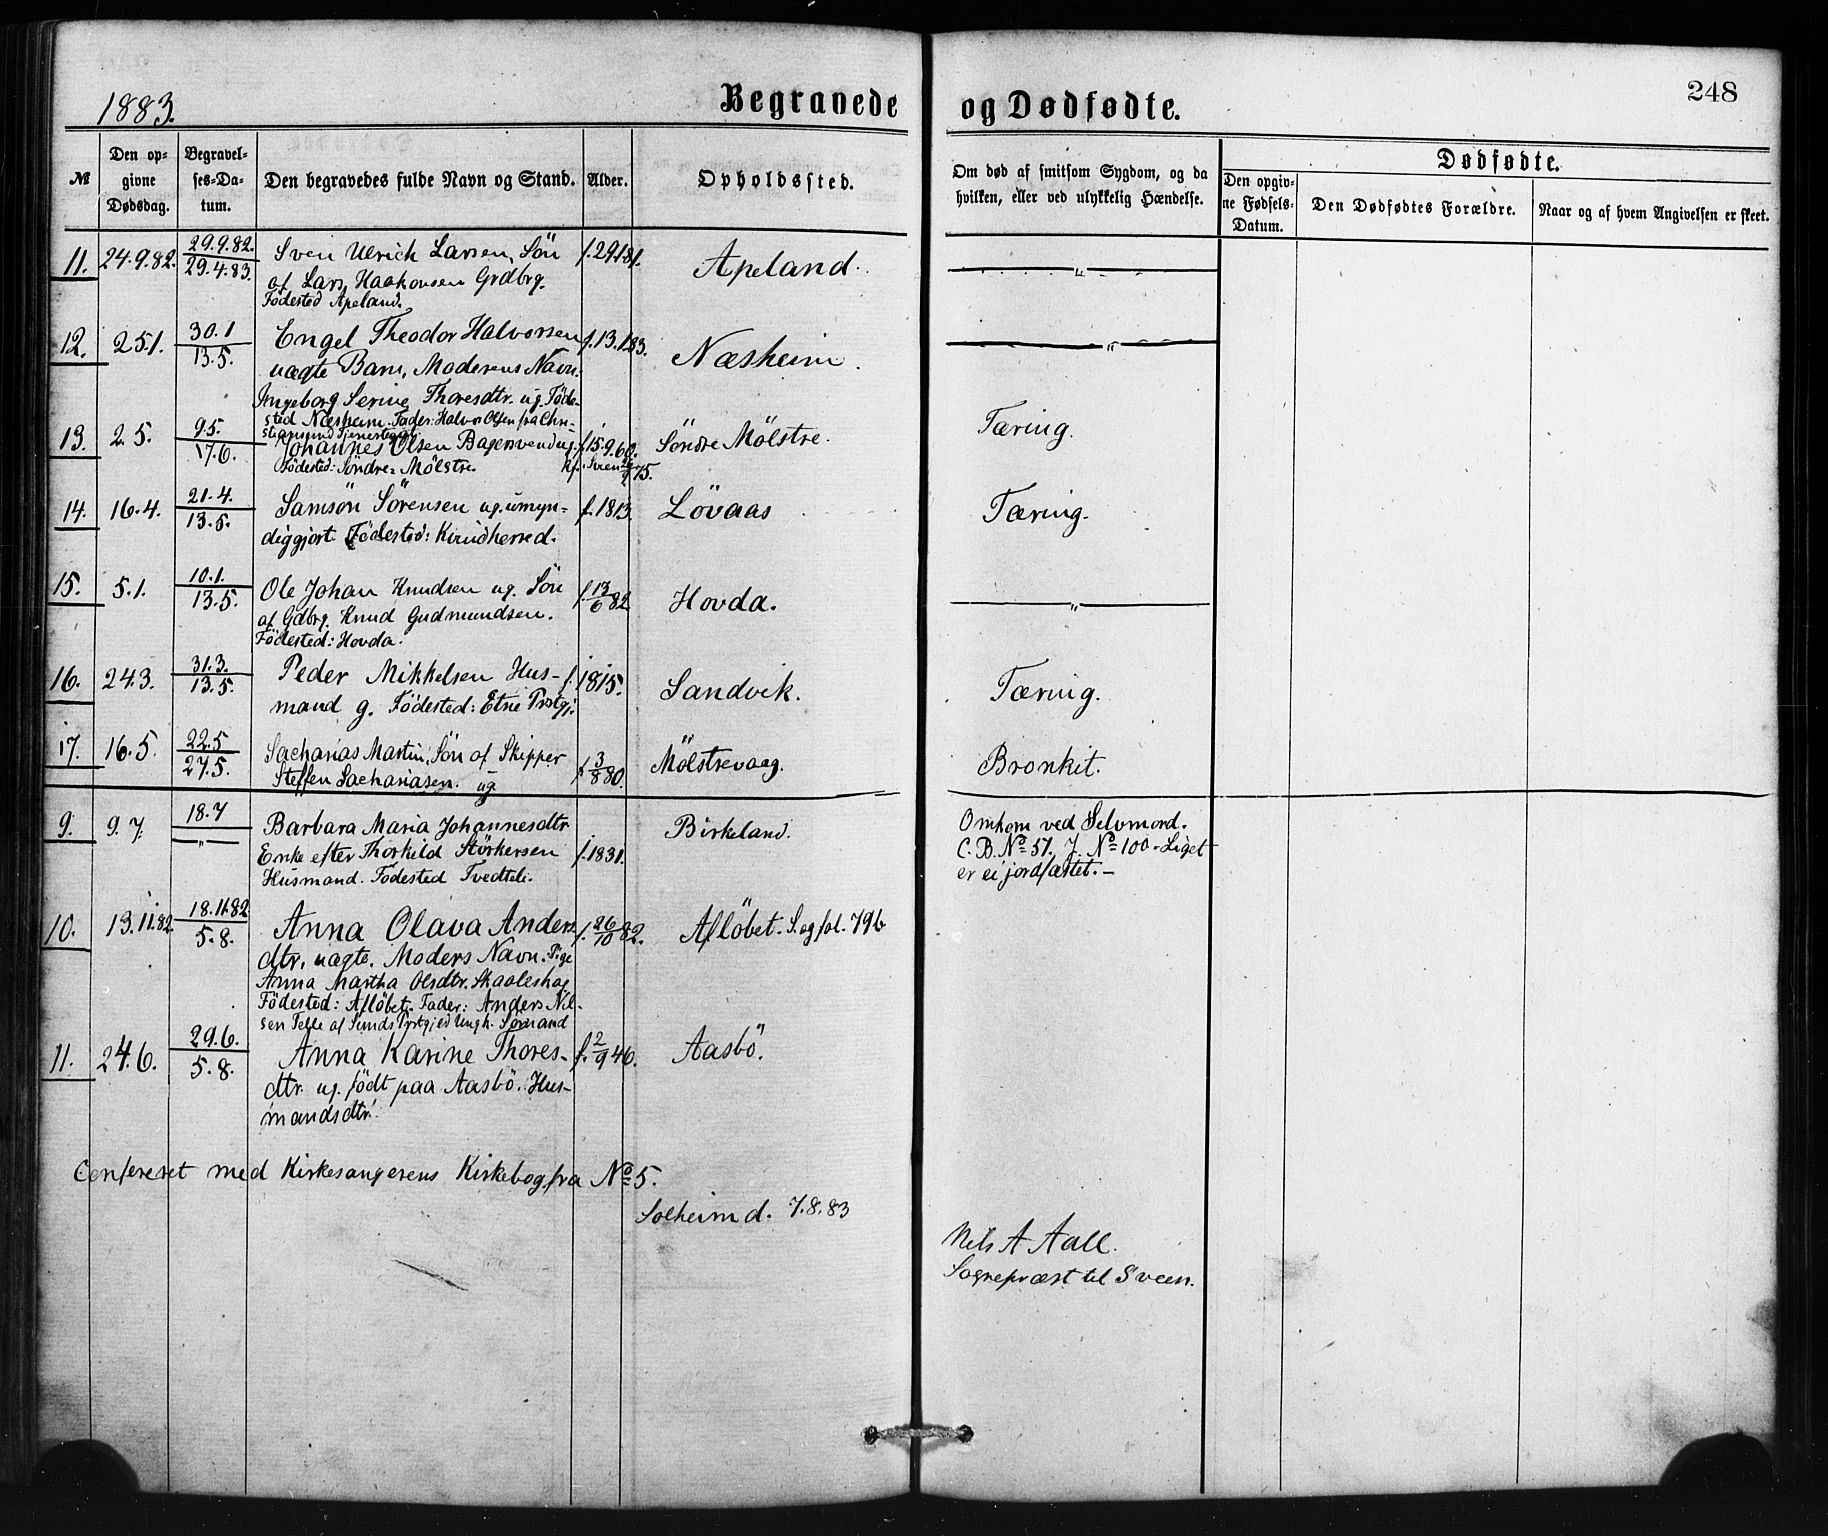 1883.
Begravede og Dødfødte.
248
№
Den opgivne Dødsdag.
Begravelses-Datum.
Den begravedes fulde Navn og Stand.
Alder.
Opholdssted.
Om død af smitsom Sygdom, og da hvilken, eller ved ulykkelig Hændelse.
Dødfødte.
Den opgivne Fødsels-Datum.
Den Dødfødtes Forældre.
Naar og af hvem Angivelsen er skeet.
11. 24.9.82. 29.9.82. Sven Ulrich Larsen, Sön f. 29.1.81. Apeland. "
29.4.83. af Lars Haakonsen Grdbrg.
Födested Apeland.
12. 25.1. 30.1 Engel Theodor Halvorsen f. 13.1.83. Næsheim. "
13.5. uægte Barn, Moderens Navn:
Ingeborg Serine Thoresdtr. ug. Föde-
sted Næsheim. Fader: Halvor Olsen fra Chri-
stiansund Tjenestegut
13. 2.5. 9.5. Johannes Olsen Bagersvend ug. f. 15.9.60. Söndre Mölstre. Tæring.
17.6. Födested: Söndre Mölstre. Kf. Sveen 75.
14. 16.4. 21.4. Samsön Sörensen ug. umyn- f. 1813. Lövaas Tæring.
13.5. diggjort. Födested: Kvindherred.
15. 5.1. 10.1. Ole Johan Knudsen ug. Sön f. 13/6 82 Hovda. "
13.5. af Gdbrg. Knud Gudmundsen.
Födested: Hovda.
16. 24.3. 31.3. Peder Mikkelsen Hus- f. 1815. Sandvik. Tæring.
13.5. mand g. Födested: Etne Prstgj.
17. 16.5. 22.5 Sacharias Martin, Sön af Skipper f. 3/8 80. Mölstrevaag. Bronkit.
27.5. Steffen Sachariasen. ug.
9. 9.7. 18.7 Barbara Maria Johannesdtr. f. 1831. Birkeland. Omkom ved Selvmord.
" Enke efter Thorkild Störkersen C.B. No 57. J. No 100. Liget
Husmand. Födested Tvedteli. er ei jordfæstet. –
10. 13.11.82. 18.11.82 Anna Olava Anders f. 26/10 82. Aflöbet. S. og fol. 79b
5.8. dtr. uægte. Moders Navn: Pige
Anna Martha Olsdtr. Skaaleshag
Födested: Aflöbet. Fader: Anders Nil-
sen Telle af Sunds Prstgjeld Ungk. Sömand
11. 24.6. 29.6. Anna Karine Thores- f. 2/9 46. Aasbö.
5.8. dtr. ug. födt paa Aasbö. Hus-
mandsdtr.
Confereret med Kirkesangerens Kirkebog fra No 5.
Solheim d. 7.8.83
Nels A Aall.
Sognepræst til Sveen.